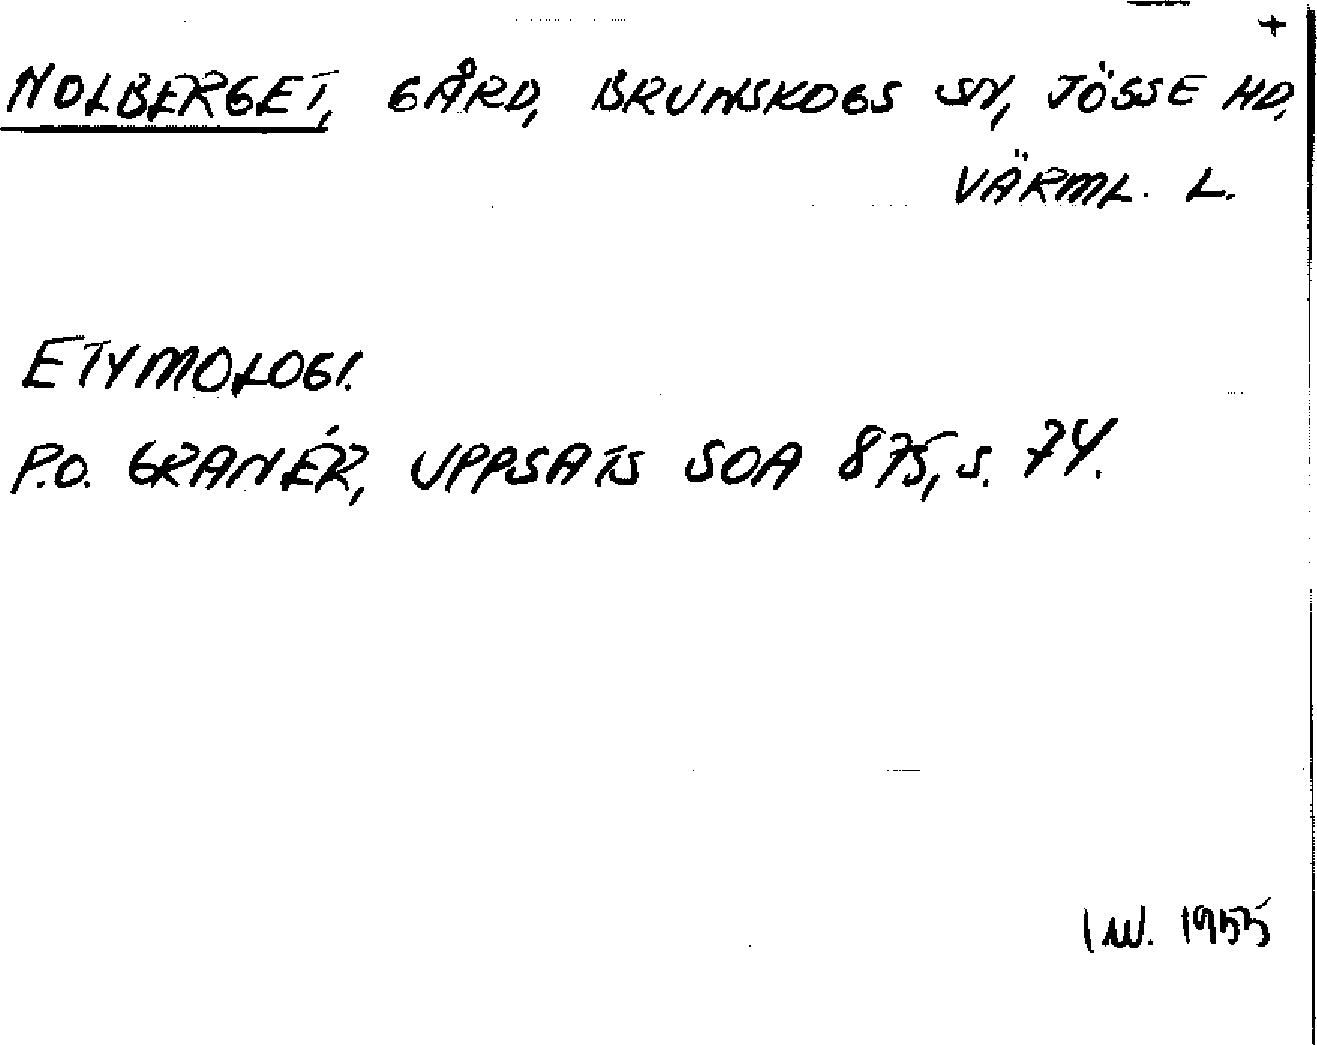 +
NOLBERGET, GÅRD, BRUNSKOGS SN, JÖSSE HD,
VÄRML. L.
ETYMOLOGI.
P.O. GRANÉR, UPPSATS SOA 875, S. 74.
1955